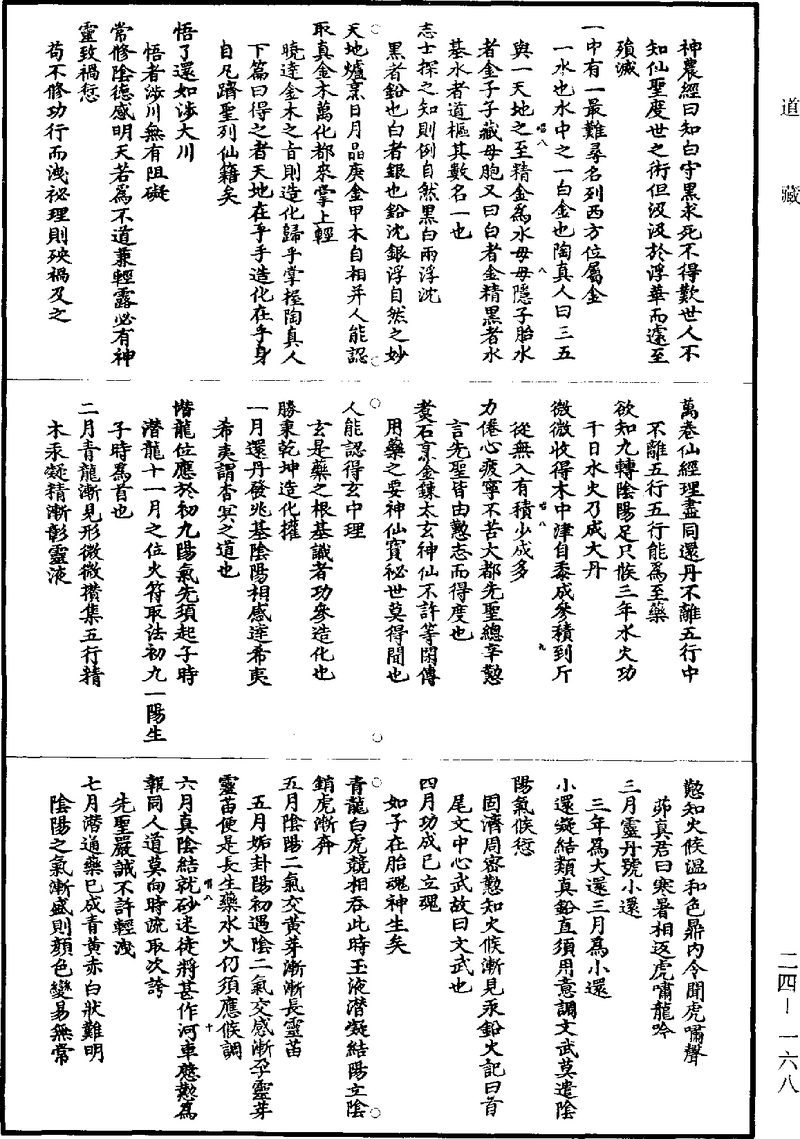 道藏
神農經曰知白守黑求死不得歎世人不
知仙聖度世之術但汲汲於浮華而遽至
殞滅
一中有一最難尋名列西方位屬金
一水也水中之一白金也陶真人曰三五
與一天地之至精金為水母母隱子胎水
者金子子藏母胞又曰白者金精黑者水
基水者道樞其數名一也
志士探之知則例自然黑白兩浮沈
黑者鉛也白者銀也鉛沈銀浮自然之妙
天地爐烹日月晶庚金甲木自相并人能認
取真金木萬化都來掌上輕
曉達金木之旨則造化歸乎掌握陶真人
下篇曰得之者天地在乎手造化在乎身
自凡躋聖列仙籍矣
悟了還如涉大川
悟者涉川無有阻礙
常修陰德感明天若為不道兼輕露必有神
靈致禍愆
苟不修功行而洩祕理則殃禍及之
萬卷仙經理盡同還丹不離五行中
不離五行五行能為至藥
欲知九轉陰陽足只候三年水火功
千日水火乃成大丹
微微收得木中津自黍成參積到斤
從無入有積少成多
力倦心疲寧不苦大都先聖總辛懃
言先聖皆由懃志而得度也
煑石烹金鍊太玄神仙不許等閑傳
用藥之妥神仙寶祕世莫得聞也
人能認得玄中理
玄是藥之根基識者功參造化也
勝秉乾坤造化權
一月還丹發兆基陰陽相感達希夷
希夷謂杳冥之道也
潛龍位應於初九陽氣先須起子時
潛龍十一月之位火符取法初九一陽生
子時為首也
二月青龍漸見形微微攢集五行精
木汞凝精漸彰靈液
懃知火候溫和色鼎內令聞虎嘯聲
茆真君曰寒暑相返虎嘯龍吟
三月靈丹號小還
三年為大還三月為小還
小還凝結類真鉛直須用意調文武莫遣陰
陽氣候愆
固濟周密懃知火候漸見汞鉛火記曰首
尾文中心武故曰文武也
四月功成已立魂
如子在胎魂神生矣
青龍白虎競相吞此時玉液潜凝結陽立陰
銷虎漸奔
五月陰陽二氣交黃芽漸漸長靈苗
五月姤卦陽初遇陰二氣交感漸孕靈芽
靈苗便是長生藥水火仍須應候調
六月真陰結就砂迷徒將甚作河車慇懃為
報同人道莫向時疏取次誇
先聖嚴誡不許輕洩
七月潛通藥已成青黃赤白狀難明
陰陽之氣漸盛則顏色變易無常
二四—一六八